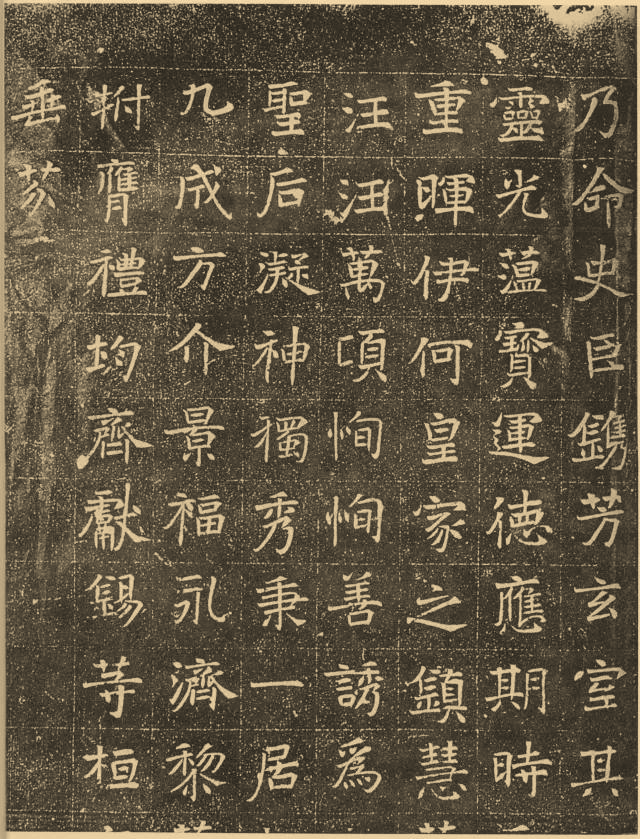 乃命史臣鐫芳玄室其
靈光蕰寶運徳應期時
重暉伊何皇家之顗慧
汪汪萬頃恂恂善誘爲
聖后凝神獨秀秉一居
九成方介景福永濟黎
祔膺禮均齊獻錫等桓
垂芬